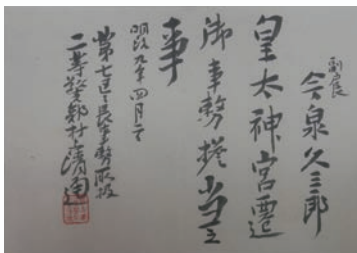 副戸長
今泉久三郎
皇太神宮遷
御事務擔当之
事
明治九年四月
第七区区長事務取扱
二等警部村上清